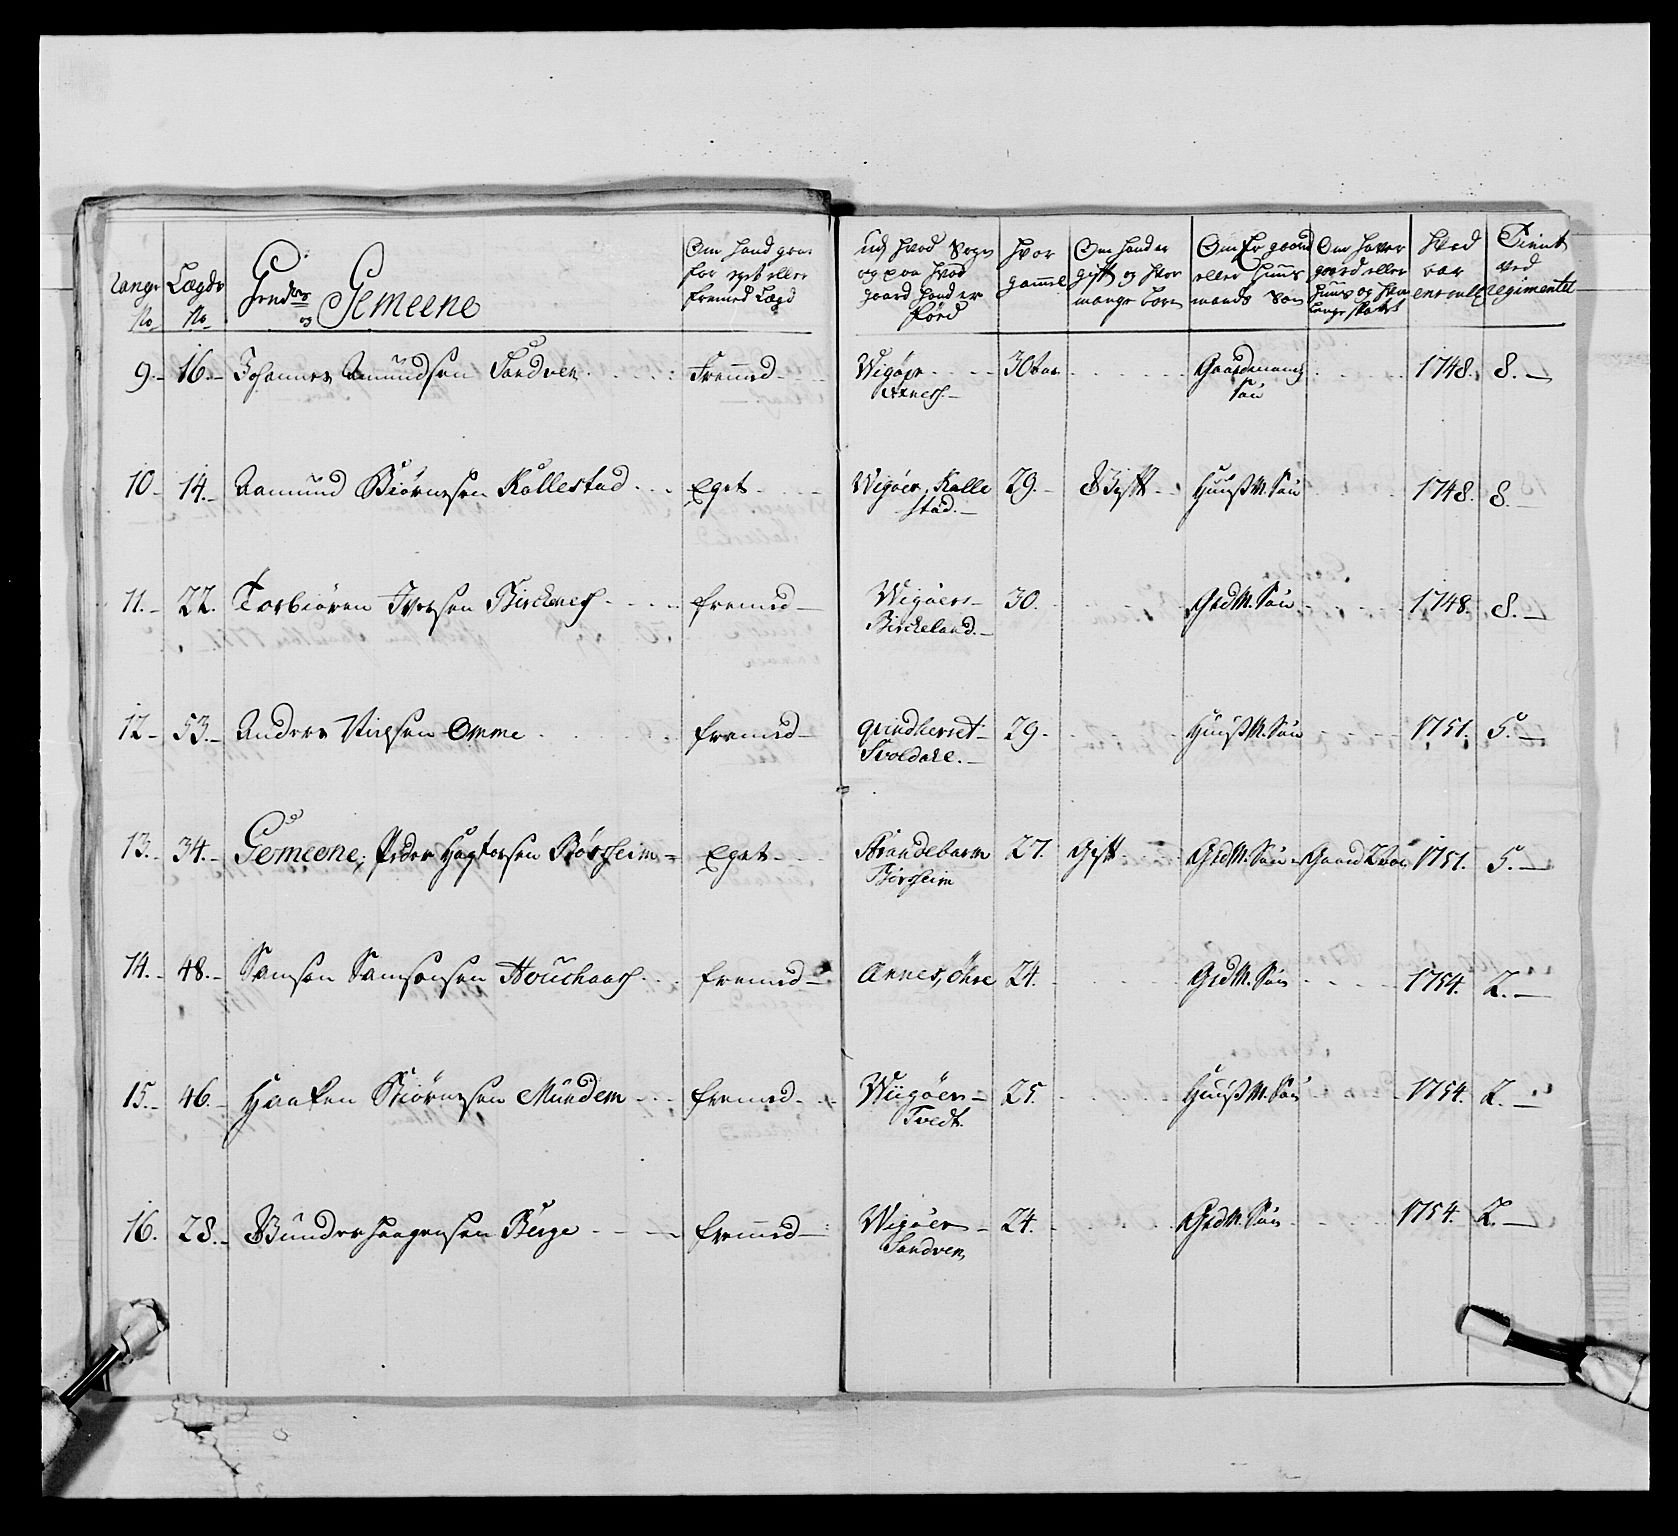 Range No
Lægds No
Grendrer og Gemeene
Om hand gaar for eget eller fremed Lægd
Udj hvad Sogn og paa hvad gaard hand er fōed
hvor gammel
Om hand er gift og hvor mange børn
Om Er gaard eller Huus mands Søn
Om haver gaard eller Huus og hvor længe
hvad aar enroull
Tient ved regimentet
9.- 16.- Johannes Amundsen Sandven fremed Wigøer 30 aar Gaardmands Søn 1748. 8.
10.- 14.- Aamund Biørnesen Kallestad Eget Wigøer, Kallestad 29. Gift HuusM. Søn 1748. 8.
11.- 22. Torbiøren Iversen Birckenes fremed Wigøer Birckeland 30. GrdM. Søn 1748. 8.
12.- 53.- Anders Omme fremed Qvindherret 29. HuusM. Søn 1751. 5.
13.- 34.- Gemeene, Peder Børsheim Eget Strandebarm Børsheim 27. Gift GrdM. Søn Gaard 2 aar 1751. 5.
14.- 48.- Samson Samsonsen fremed 24. GrdM. Søn 1754. 2.
15.- 46.- Haaken Biørnesen Mundem fremed Wiigøer Tvedt 25. HuusM. Søn 1754. 2.
16. 28.- Haagensen Berge fremed Wigøer Sandven 24. GrdM. Søn 1754. 2.